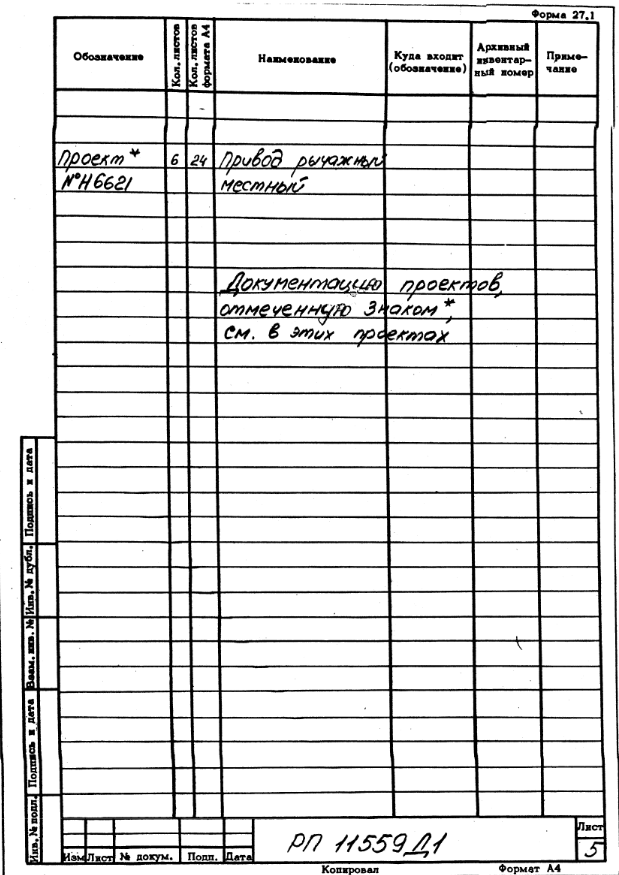 Форма 27.1
Обозначение
Кол. листов
Кол. листов
формата А4
Наименование
Куда входит
(обозначение)
Архивный
инвентар-
ный номер
Приме-
чание
Проект* 6 24 Привод рычажный
№Н6621 местный
Документацию проектов,
отмеченную знаком *,
см. в этих проектах
Подпись и дата
Инв. № дубл.
Взам. инв. №
Подпись и дата
Инв. № подл.
Изм Лист № докум. Подп. Дата
РП 11559 Д1
Лист
5
Копировал Формат А4